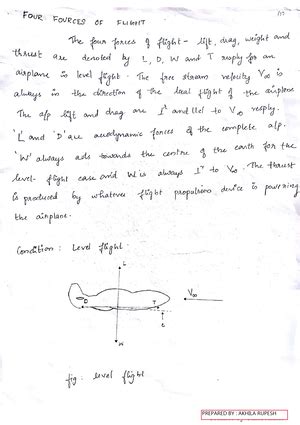 FOUR FOURCES OF FLIGHT
The four forces of flight - lift, drag, weight and
thrust are denoted by L, D, W and T resply for an
airplane is level flight. The free stream velocity V∞ is
always in the direction of the local flight of the airplane
The a/p lift and drag are ⊥r and llel to V∞ resply.
'L' and 'D' are aerodynamic forces of the complete a/p.
'W' always acts towards the centre of the earth for the
level flight case and W is always ⊥r to V∞. The thrust
is produced by whatever flight propulsion device is powering
the airplane.
Condition : Level flight.
L
V∞
D
T
ε
W
fig: level flight
PREPARED BY : AKHILA RUPESH